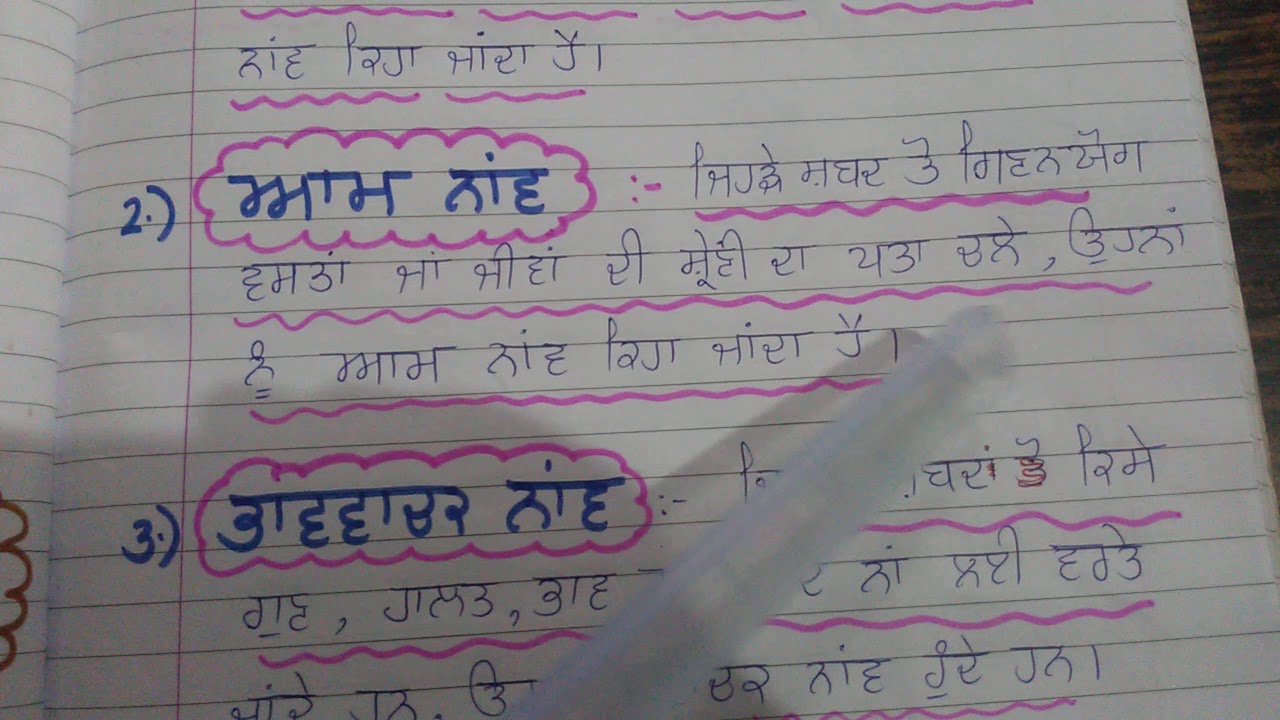 ਨਾਂਵ ਕਿਹਾ ਜਾਂਦਾ ਹੈ।
2.) ਆਮ ਨਾਂਵ :- ਜਿਹੜੇ ਸ਼ਬਦ ਤੋਂ ਗਿਣਨਯੋਗ
ਵਸਤਾਂ ਜਾਂ ਜੀਵਾਂ ਦੀ ਸ਼੍ਰੇਣੀ ਦਾ ਪਤਾ ਚਲੇ, ਉਹਨਾਂ
ਨੂੰ ਆਮ ਨਾਂਵ ਕਿਹਾ ਜਾਂਦਾ ਹੈ।
3.) ਭਾਵਵਾਚਕ ਨਾਂਵ :- ਕਿਸੇ
ਗੁਣ, ਹਾਲਤ, ਭਾਵ ਨਾਂ ਲਈ ਵਰਤੇ
ਜਾਂਦੇ ਹਨ, ਨਾਂਵ ਹੁੰਦੇ ਹਨ।